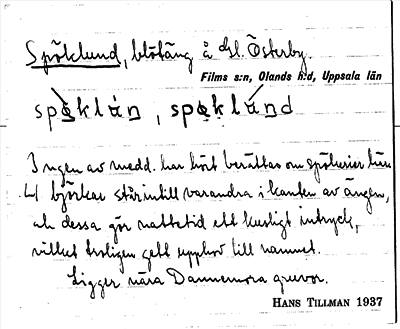 Spöklund, blötäng å Gl. Österby.
Films s:n, Olands h:d, Uppsala län
Ingen av medd. har hört berättas om spökerier här.
4 björkar stå intill varandra i kanten av ängen,
och dessa gör nattetid ett kusligt intryck,
vilket troligen gett upphov till namnet.
Ligger nära Dannemora gruvor.
HANS TILLMAN 1937